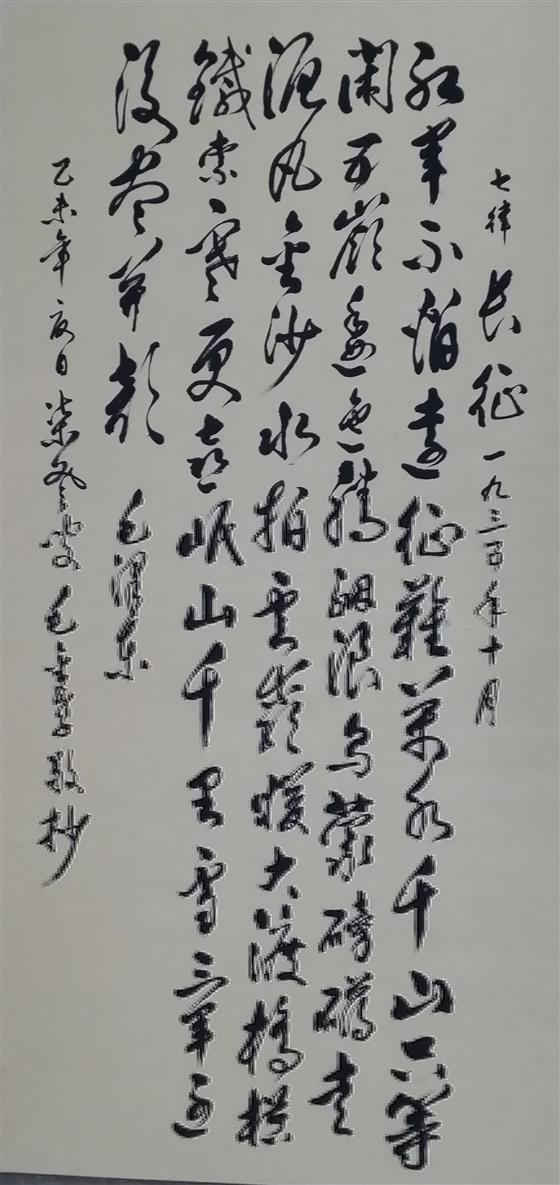 七律 长征 一九三五年十月
红军不怕遠征難萬水千山只等
闲五嶺逶迤腾细浪乌蒙磅礴走
泥丸金沙水拍云崖暖大渡橋横
鐵索寒更喜岷山千里雪三军过
後尽开颜 毛泽东
乙未年夏日 毛 敬抄